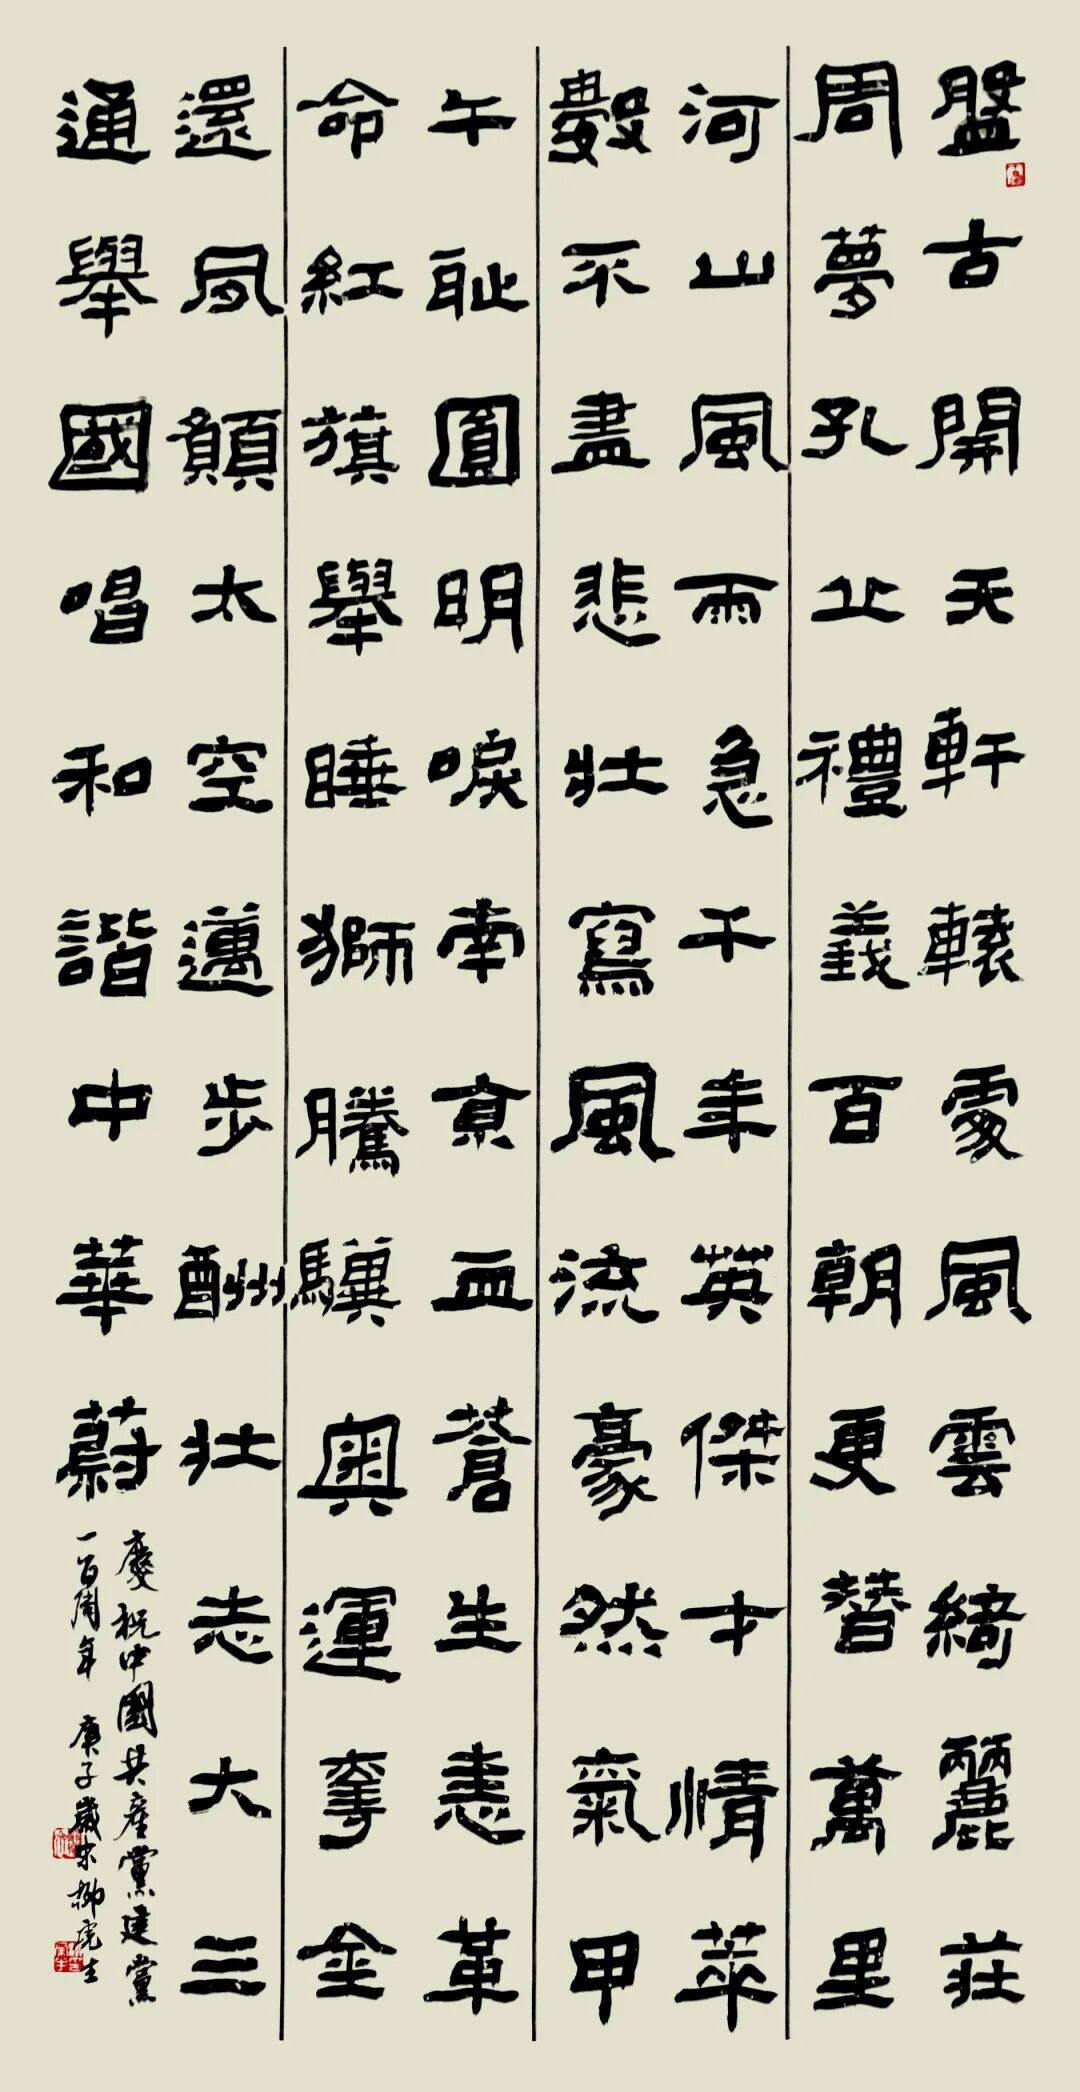 盤古開天軒轅處風雲綺麗莊
周夢孔丘禮義百朝更替萬里
河山風雨急千年英傑才情萃
數不盡悲壯寫風流豪然氣甲
午恥圓明唳南京血蒼生恚革
命紅旗舉睡獅騰驥奧運奪金
還夙願太空邁步酬壯志大三
通舉國唱和諧中華蔚
慶祝中國共產黨建黨
一百周年 庚子歲末柳虎生